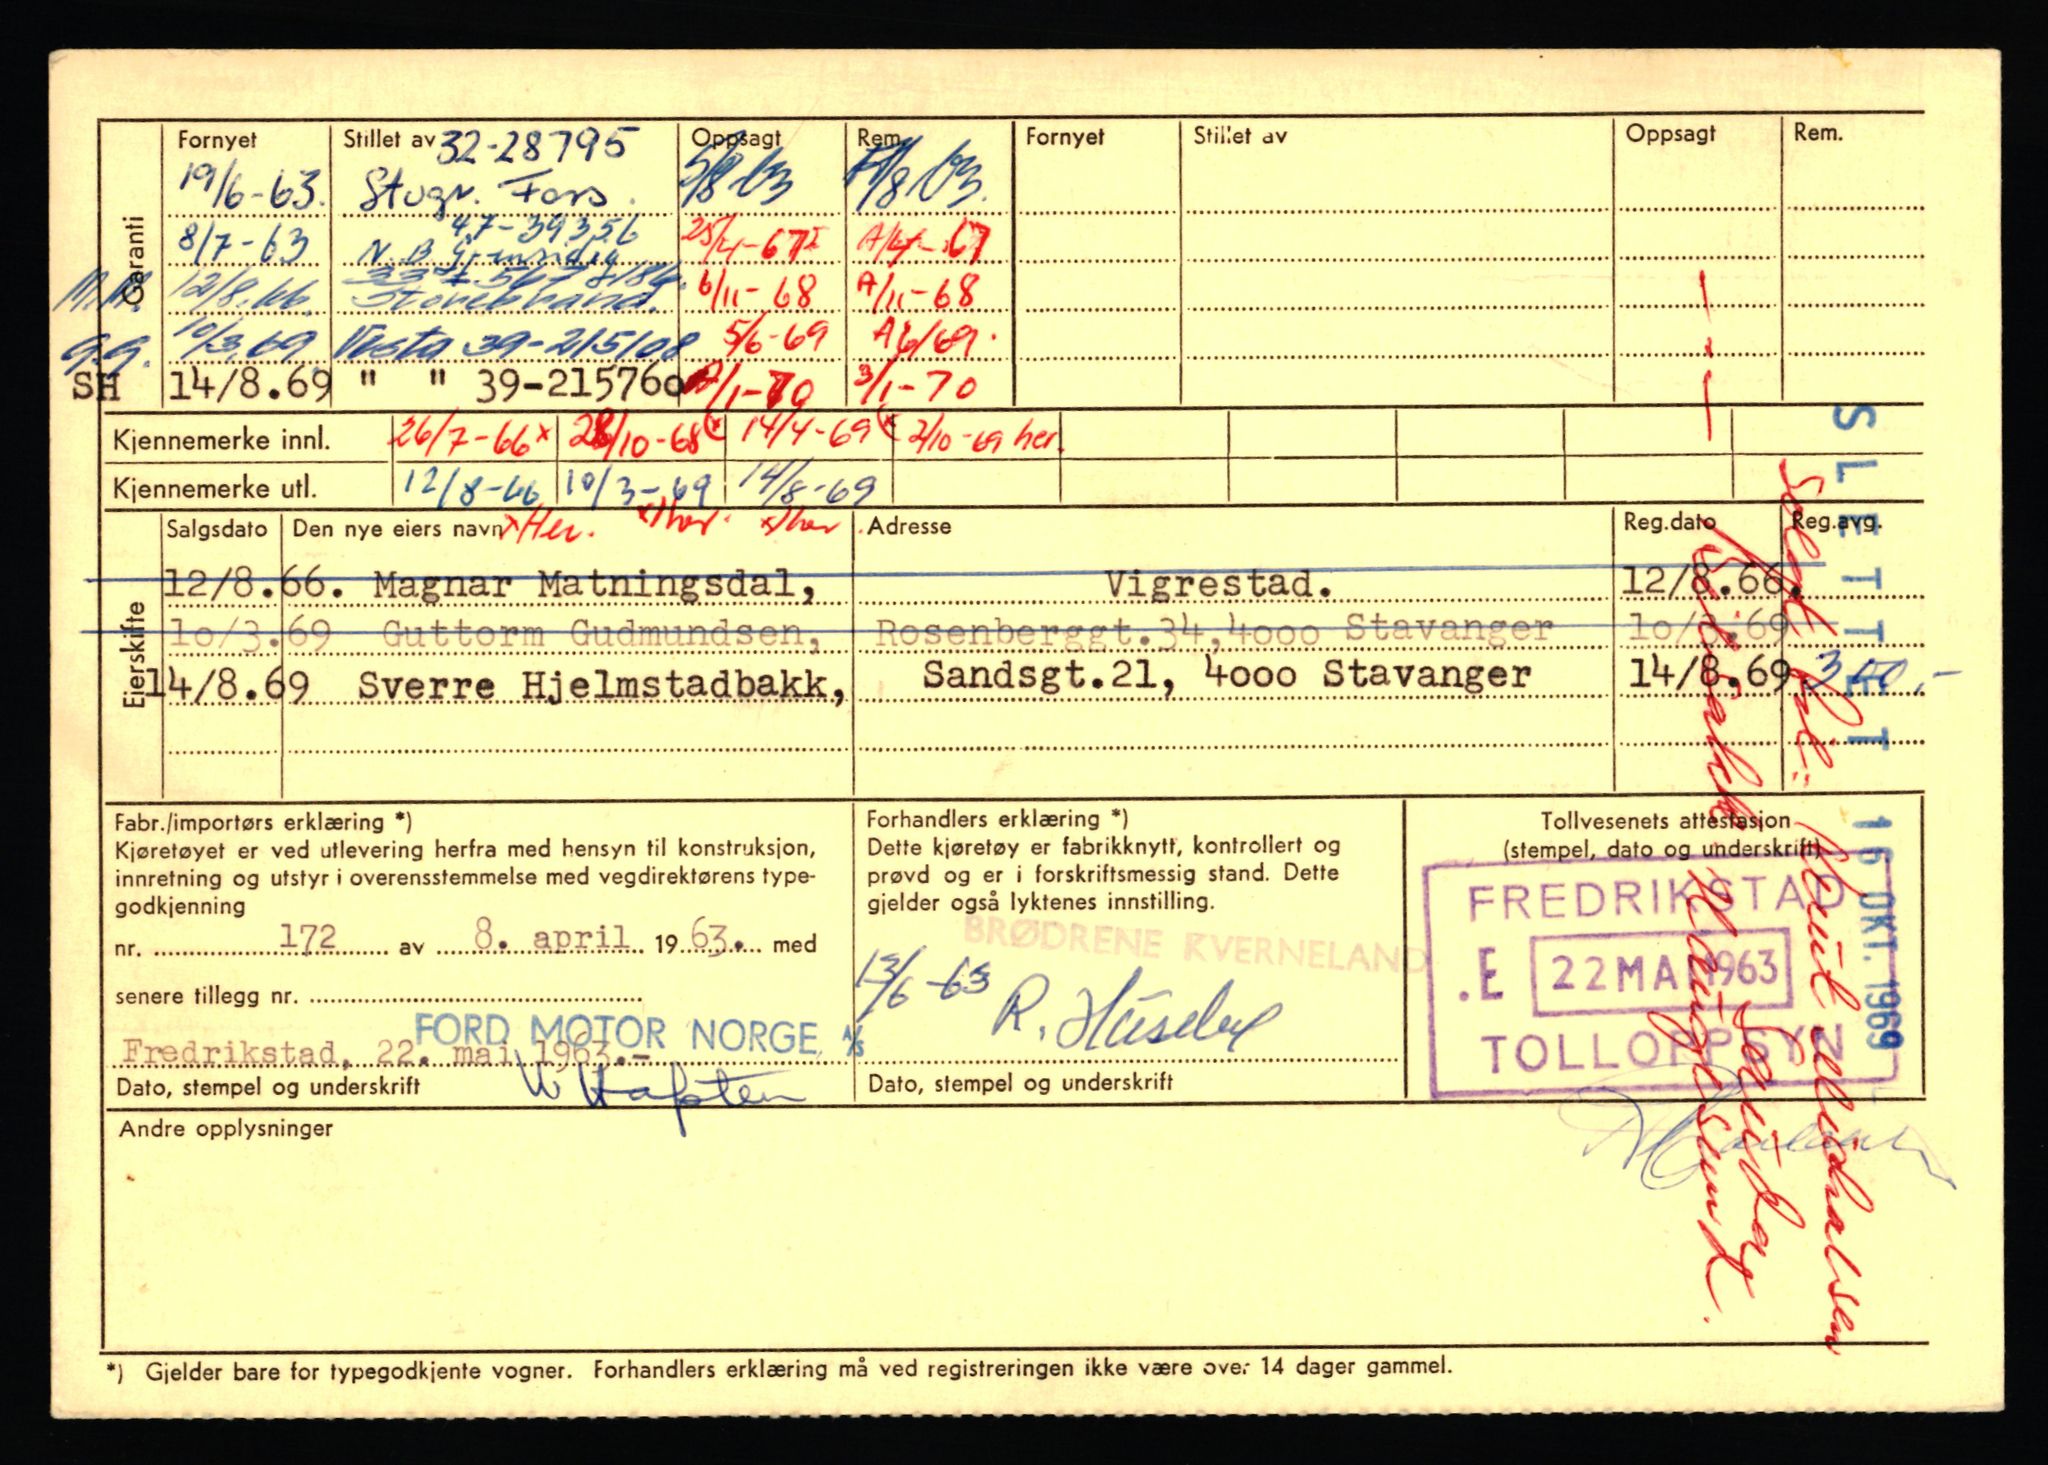 Fornyet Stillet av 32-28795 Oppsagt Rem. Fornyet Stillet av Oppsagt Rem.
Garanti
19/6-63. Stvgr. Fors. 5/8 63 /8 63.
47-39356
8/7-63 N.B. 25/4-67 A/4-67
12/8.66. Storebrand. 6/11-68 A/11-68
G.G. 10/3.69 Vesta 39-215108 5/6-69 A6/69.
SH 14/8.69 " " 39-215760 /1-70 3/1-70
Kjennemerke innl. 26/7-66 x 28/10-68 (x 14/4-69 (x 2/10-69 her.
Kjennemerke utl. 12/8-66 10/3-69 14/8-69
Eierskifte
Salgsdato Den nye eiers navn x Her. x her. x her. Adresse Reg.dato Reg.avg.
12/8.66. Magnar Matningsdal, Vigrestad. 12/8.66.
10/3.69 Guttorm Gudmundsen, Rosenberggt.34,4000 Stavanger 10/3.69
14/8.69 Sverre Hjelmstadbakk, Sandsgt.21, 4000 Stavanger 14/8.69 300,-
SLETTET
15 OKT. 1969
Solgt til: Knut
Haugesund.
Fabr./importørs erklæring *)
Kjøretøyet er ved utlevering herfra med hensyn til konstruksjon,
innretning og utstyr i overensstemmelse med vegdirektørens type-
godkjenning
nr. 172 av 8. april 1963. med
senere tillegg nr.
FORD MOTOR NORGE A/S
Fredrikstad, 22. mai 1963.-
Dato, stempel og underskrift
Forhandlers erklæring *)
Dette kjøretøy er fabrikknytt, kontrollert og
prøvd og er i forskriftsmessig stand. Dette
gjelder også lyktenes innstilling.
BRØDRENE KVERNELAND
13/6-63 R. Húseby
Dato, stempel og underskrift
Tollvesenets attestasjon
(stempel, dato og underskrift)
FREDRIKSTAD
.E 22 MAI 1963
TOLLOPPSYN
Andre opplysninger
*) Gjelder bare for typegodkjente vogner. Forhandlers erklæring må ved registreringen ikke være over 14 dager gammel.